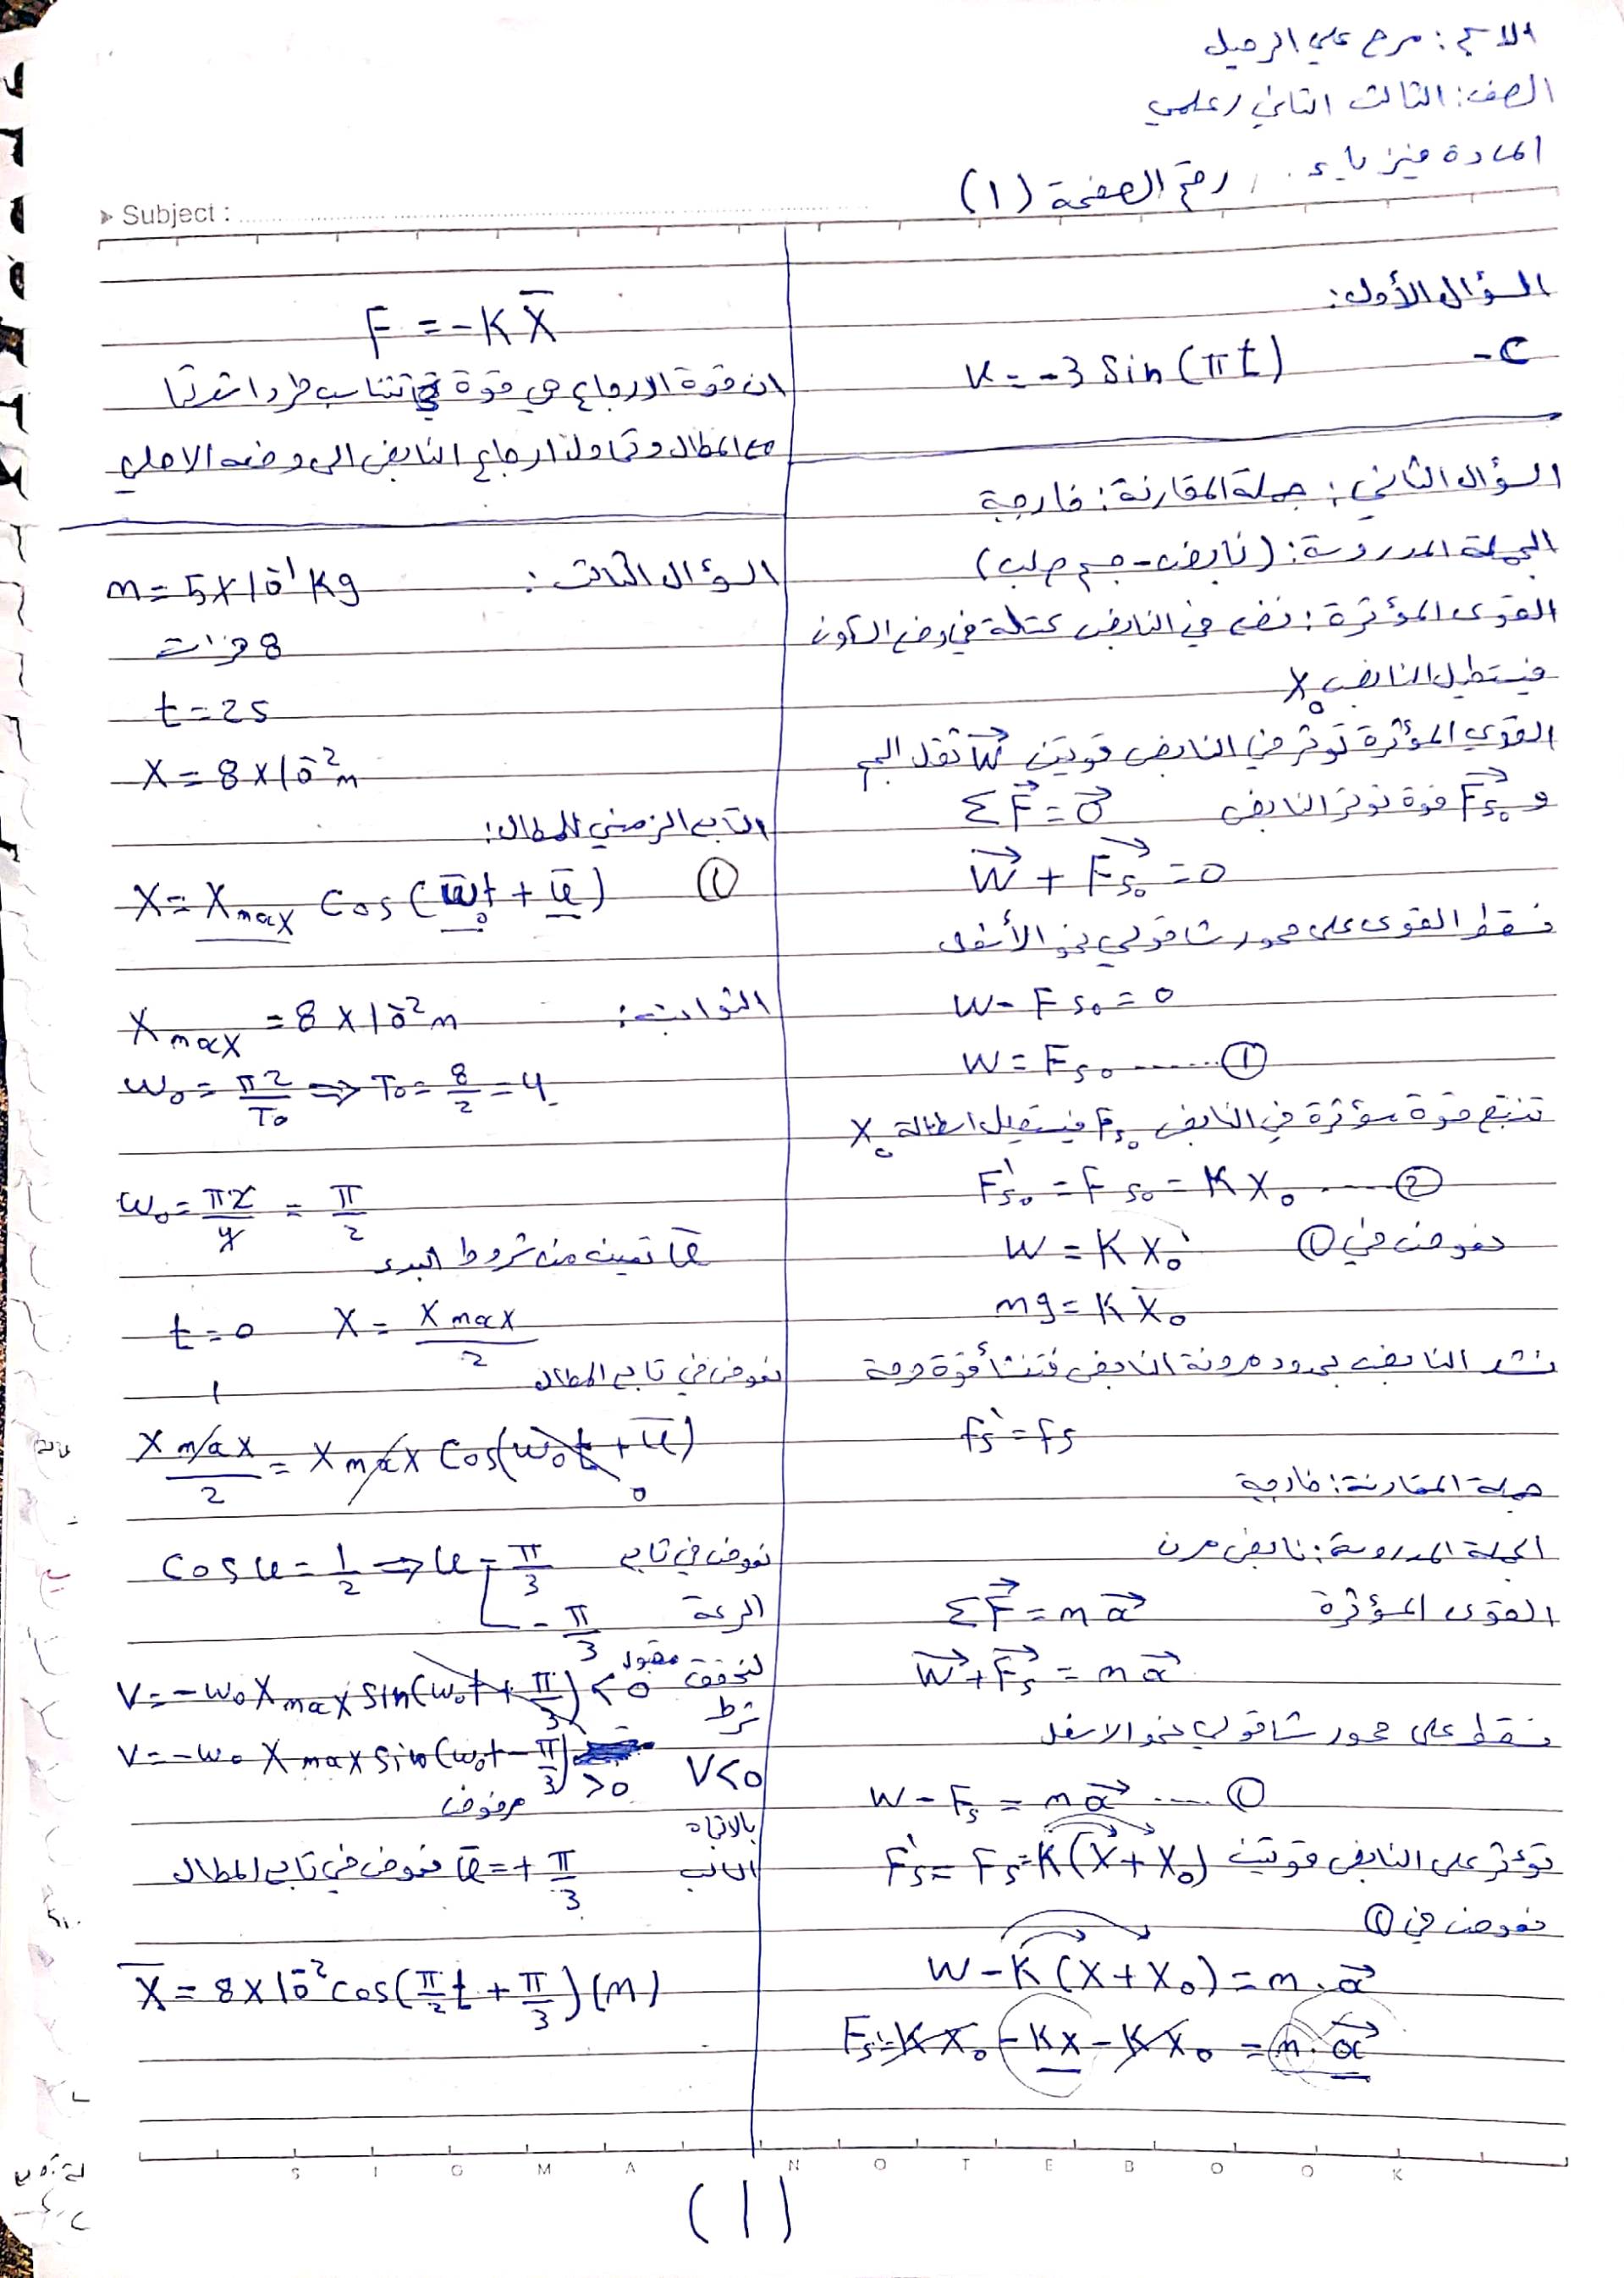 الاسم: مرح علي الرحيل
الصف: الثالث الثاني / علمي
المادة فيزياء. , رقم الصفحة (1)
Subject :
السؤال الأول:
c- x = -3 Sin(πt)
السؤال الثاني: جملة المقارنة: خارجية
الجملة المدروسة: (نابض - جسم صلب)
القوى المؤثرة: نضع في النابض كتلة في وضع السكون
فيستطيل النابض X₀
القوى المؤثرة تؤثر في النابض قوتين W⃗ ثقل الجسم
و F⃗s₀ قوة توتر النابض ΣF⃗ = 0⃗
W⃗ + F⃗s₀ = 0
نسقط القوى على محور شاقولي نحو الأسفل
W - Fs₀ = 0
W = Fs₀ ...... ①
تنتج قوة مؤثرة في النابض Fs₀ فيستطيل استطالة X₀
F's₀ = Fs₀ = K X₀ ..... ②
نعوض في ① W = K X₀
mg = K X₀
نشد النابض بحدود مرونة النابض فتنشأ قوة مرنة
f's = fs
جملة المقارنة: خارجية
الجملة المدروسة: نابض مرن
القوى المؤثرة ΣF⃗ = m a⃗
W⃗ + F⃗s = m a⃗
نسقط على محور شاقولي نحو الاسفل
W - Fs = m a⃗ ..... ①
تؤثر على النابض قوتين F's = Fs = K(X + X₀)
نعوض في ①
W - K(X + X₀) = m . a⃗
Fs = KX₀ - KX - KX₀ = m . a⃗
F = -K X̄
ان قوة الارجاع هي قوة تتناسب طردا شدتها
مع المطال وتحاول ارجاع النابض الى وضعه الاصلي
السؤال الثالث: m = 5 x 10⁻¹ Kg
8 هزات
t = 2s
X = 8 x 10⁻² m
التابع الزمني للمطال:
X = Xmax Cos(ω₀t + φ̄) ①
الثوابت: Xmax = 8 x 10⁻² m
ω₀ = π2/T₀ ⇒ T₀ = 8/2 = 4
ω₀ = π2/4 = π/2
φ̄ نعينه من شروط البدء
t = 0 X = Xmax/2
نعوض في تابع المطال
Xmax/2 = Xmax Cos(ω₀t + φ̄)
Cosφ = 1/2 ⇒ φ = π/3 نعوض في تابع
-π/3 السرعة
V = -ω₀ Xmax Sin(ω₀t + π/3) < 0 مقبول لتحقق
شرط
V = -ω₀ Xmax Sin(ω₀t - π/3) > 0 V<0
مرفوض
بالاتجاه
السالب φ̄ = + π/3 نعوض في تابع المطال
X̄ = 8 x 10⁻² cos(π/2 t + π/3) (m)
SIGMA NOTEBOOK
(1)